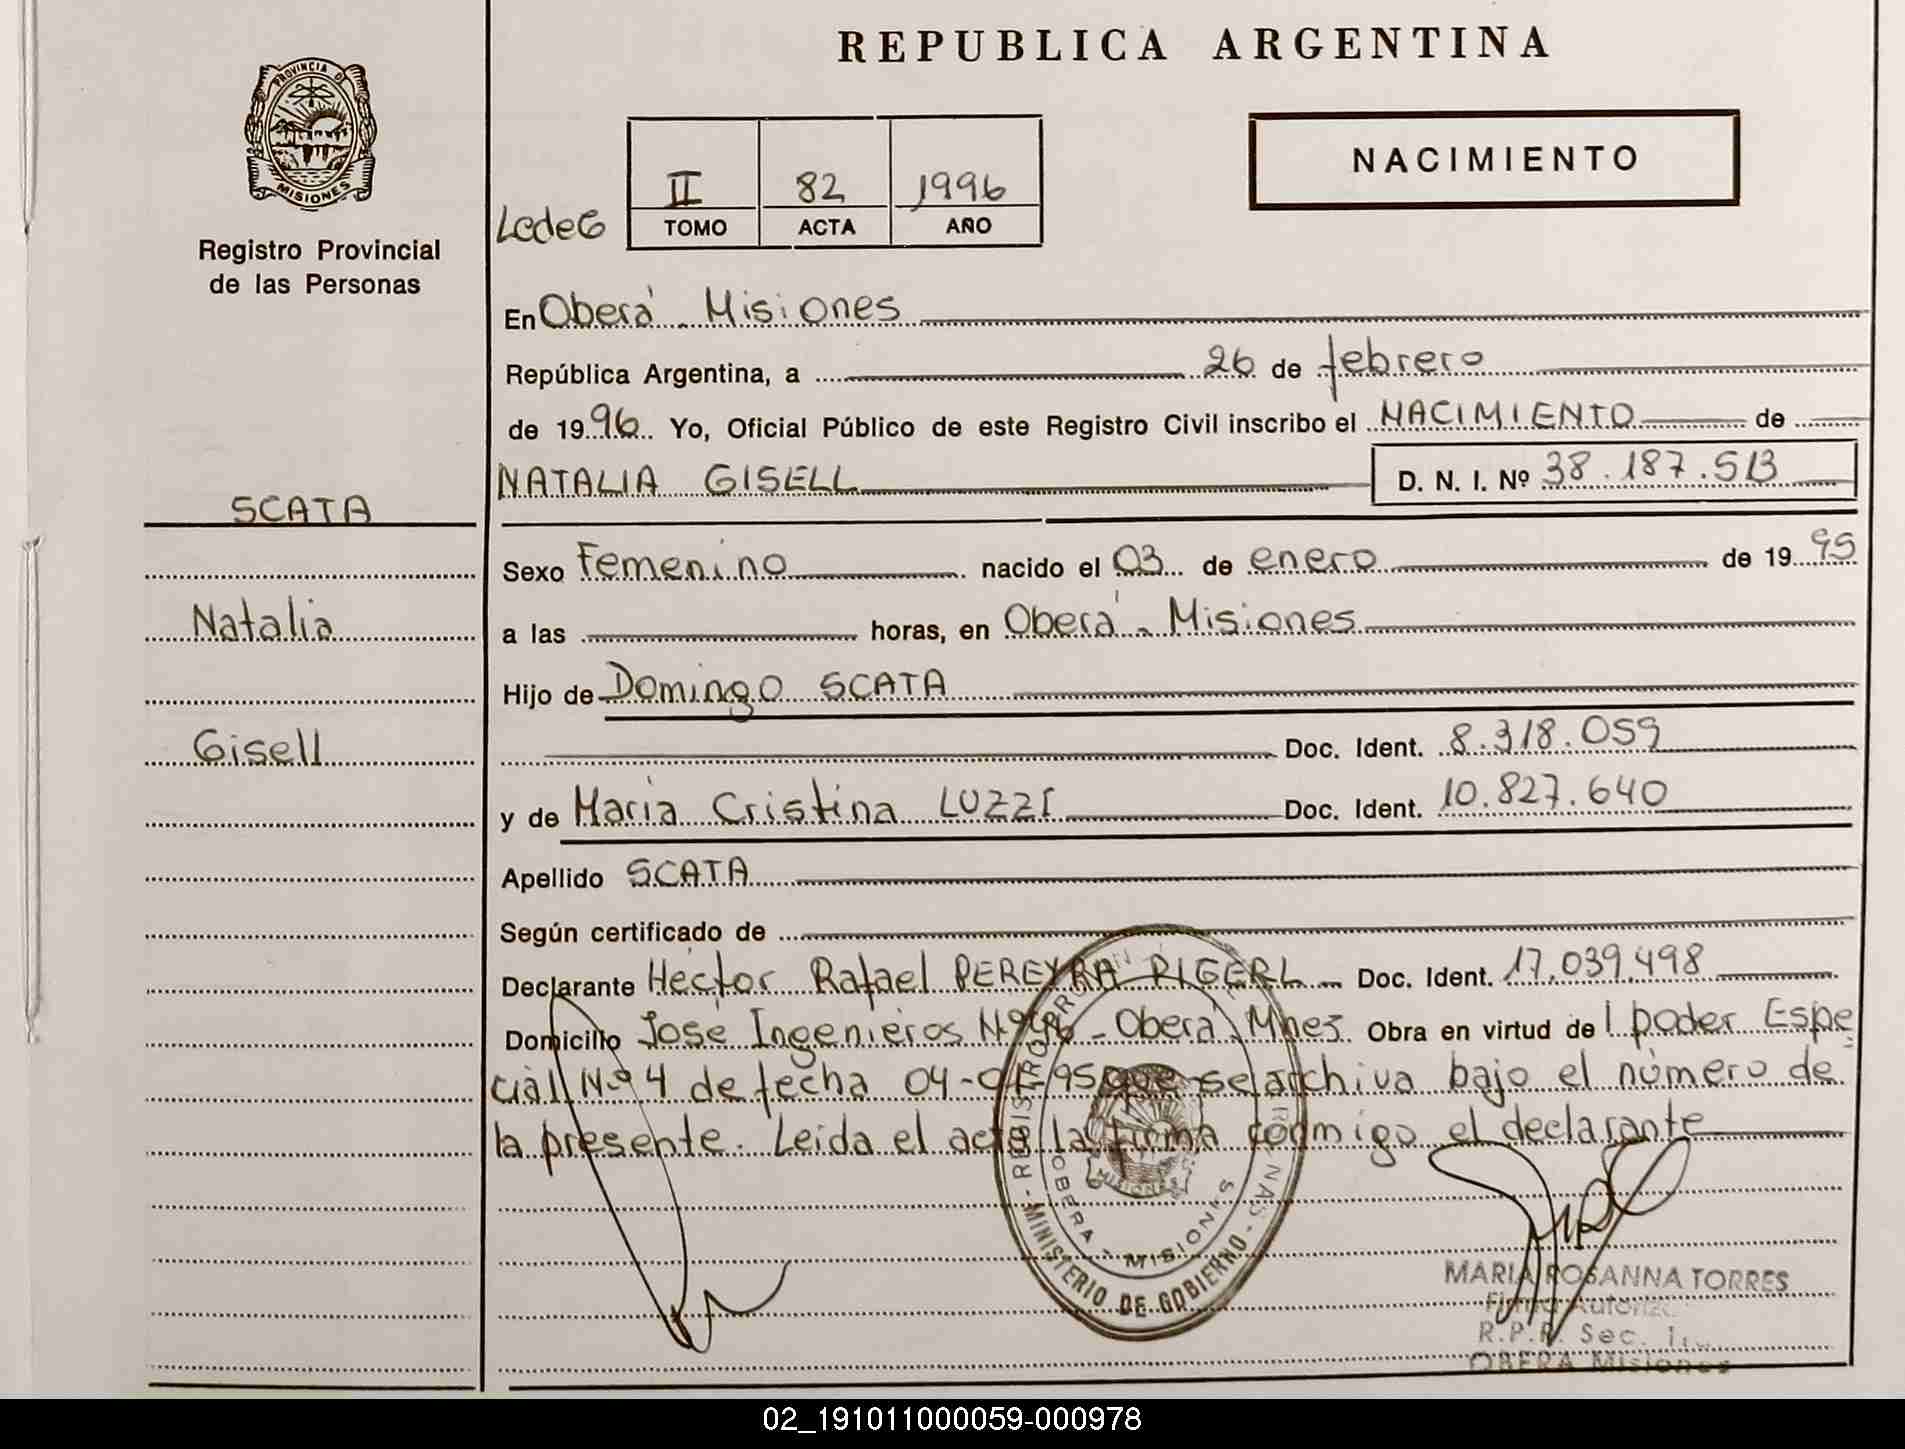 REPUBLICA ARGENTINA
PROVINCIA D
MISIONES
Registro Provincial
de las Personas
NACIMIENTO
II 82 1996
TOMO ACTA AÑO
LcdeG
En Oberá - Misiones
República Argentina, a 26 de febrero
de 1996 Yo, Oficial Público de este Registro Civil inscribo el NACIMIENTO de
NATALIA GISELL D. N. I. Nº 38.187.513
SCATA
Sexo Femenino nacido el 03 de enero de 1995
Natalia
a las horas, en Oberá - Misiones
Hijo de Domingo SCATA
Gisell
Doc. Ident. 8.318.059
y de María Cristina LUZZI Doc. Ident. 10.827.640
Apellido SCATA
Según certificado de
Declarante Héctor Rafael PEREYRA PIGERL Doc. Ident. 17.039.498
Domicilio José Ingenieros Nº - Oberá - Mnes. Obra en virtud de 1 poder Espe
cial Nº 4 de fecha 04-01-95 que se archiva bajo el número de
la presente. Leída el acta la firma conmigo el declarante
OBERA - MISIONES
MINISTERIO DE GOBIERNO
MISIONES
MARIA ROSANNA TORRES
Firma Autoriz
R.P.P. Sec.
OBERA Misiones
02_191011000059-000978